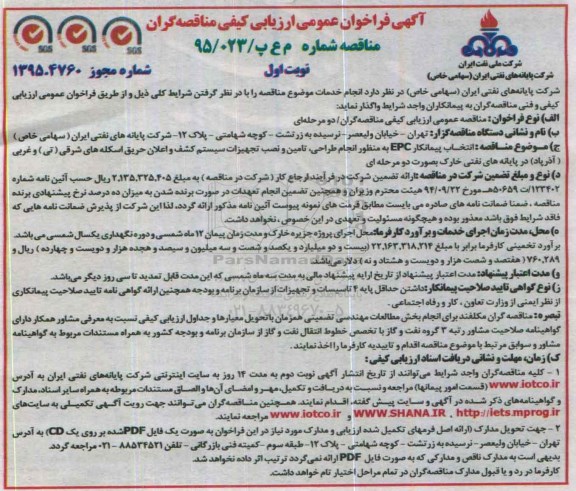 آگهی فراخوان عمومی ارزیابی کیفی مناقصه گران
مناقصه شماره م ع پ/۹۵/۰۲۳
نوبت اول
شماره مجوز ۱۳۹۵.۴۷۶۰
شرکت ملی نفت ایران
شرکت پایانه‌های نفتی ایران (سهامی خاص)
SGS SGS SGS
شرکت پایانه‌های نفتی ایران (سهامی خاص) در نظر دارد انجام خدمات موضوع مناقصه را با در نظر گرفتن شرایط کلی ذیل و از طریق فراخوان عمومی ارزیابی
کیفی و فنی مناقصه‌گران به پیمانکاران واجد شرایط واگذار نماید:
الف) نوع فراخوان: مناقصه عمومی ارزیابی کیفی مناقصه‌گران/ دو مرحله‌ای
ب) نام و نشانی دستگاه مناقصه‌گزار: تهران - خیابان ولیعصر - نرسیده به زرتشت - کوچه شهامتی - پلاک ۱۲ - شرکت پایانه های نفتی ایران (سهامی خاص)
ج) موضوع مناقصه: انتخاب پیمانکار EPC به منظور انجام طراحی، تامین و نصب تجهیزات سیستم کشف و اعلان حریق اسکله های شرقی (تی) و غربی
(آذرپاد) در پایانه های نفتی خارک بصورت دو مرحله ای
د) نوع و مبلغ تضمین شرکت در مناقصه: ارائه تضمین شرکت در فرآیند ارجاع کار (شرکت در مناقصه) به مبلغ ۲,۱۳۵,۳۲۵,۴۰۵ ریال حسب آئین نامه شماره
۱۲۳۴۰۲/ت۵۰۶۵۹هـ مورخ ۹۴/۰۹/۲۲ هیئت محترم وزیران و همچنین تضمین انجام تعهدات در صورت برنده شدن به میزان ده درصد نرخ پیشنهادی برنده
مناقصه، ضمنا ضمانت نامه های صادره می بایست مطابق فرمت های نمونه پیوست آئین نامه مذکور ارائه گردد، لذا این شرکت از پذیرش ضمانت نامه هایی که
فاقد شرایط فوق باشد معذور بوده و هیچگونه مسئولیت و تعهدی در این خصوص نخواهد داشت.
ه) محل، مدت زمان اجرای خدمات و برآورد کارفرما: محل اجرای پروژه جزیره خارک و مدت زمان پیمان ۱۲ ماه شمسی و دوره نگهداری یکسال شمسی می باشد.
برآورد تخمینی کارفرما برابر با مبلغ ۲۲,۱۶۳,۳۱۸,۲۱۴ (بیست و دو میلیارد و یکصد و شصت و سه میلیون و سیصد و هجده هزار و دویست و چهارده) ریال و
۷۶۰,۲۸۹ (هفتصد و شصت هزار و دویست و هشتاد و نه) دلار می باشد.
و) مدت اعتبار پیشنهاد: مدت اعتبار پیشنهاد از تاریخ ارایه پیشنهاد مالی به مدت سه ماه شمسی که این مدت قابل تمدید تا سی روز دیگر می‌باشد.
ز) نوع گواهی تایید صلاحیت پیمانکار: داشتن حداقل پایه ۴ تاسیسات و تجهیزات از سازمان برنامه و بودجه همچنین ارائه گواهی نامه تایید صلاحیت پیمانکاری
از نظر ایمنی از وزارت تعاون، کار و رفاه اجتماعی.
تبصره: مناقصه گران مکلفند برای انجام بخش مطالعات مهندسی تضمینی همزمان با تحویل معیارها و جداول ارزیابی کیفی نسبت به معرفی مشاور همکار دارای
گواهینامه صلاحیت مشاور رتبه ۳ گروه نفت و گاز با تخصص خطوط انتقال نفت و گاز از سازمان برنامه و بودجه کشور به همراه مستندات مربوط به گواهینامه
مشاور و سوابق مرتبط با موضوع مناقصه اقدام و تاییدیه کارفرما را اخذ نمایند.
ک) زمان، مهلت و نشانی دریافت اسناد ارزیابی کیفی:
۱ - کلیه مناقصه‌گران واجد شرایط می‌توانند از تاریخ انتشار آگهی نوبت دوم به مدت ۱۴ روز به سایت اینترنتی شرکت پایانه‌های نفتی ایران به آدرس
www.iotco.ir (قسمت امور پیمانها) مراجعه و نسبت به دریافت و تکمیل، مهر و امضای آن‌ها و الصاق مستندات مربوطه به همراه سایر اسناد، مدارک
و گواهینامه‌های ذکر شده در آگهی و سایت پیش گفته، اقدام نمایند. همچنین مناقصه‌گران می‌توانند جهت رویت آگهی تکمیلی به سایت‌های
http://iets.mprog.ir ، WWW.SHANA.IR و www.iotco.ir مراجعه نمایند.
۲ - جهت تحویل مدارک (ارائه اصل فرمهای تکمیل شده ارزیابی و مدارک مورد نیاز در این فراخوان به صورت یک فایل PDF شده بر روی یک CD) به آدرس
تهران - خیابان ولیعصر - نرسیده به زرتشت - کوچه شهامتی - پلاک ۱۲ - طبقه سوم - کمیته فنی بازرگانی - تلفن ۸۸۵۳۴۵۲۱ - ۰۲۱ مراجعه گردد.
بدیهی است به مدارک ناقص و مدارکی که به صورت فایل PDF ارائه نمی‌گردد ترتیب اثر داده نخواهد شد.
کارفرما در رد و یا قبول مدارک مناقصه‌گران در تمام مراحل اختیار تام خواهد داشت.